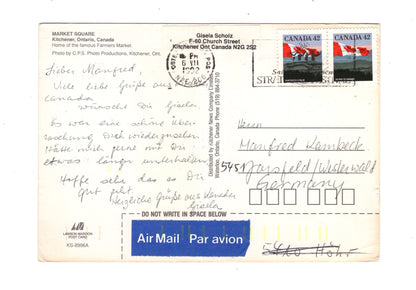 MARKET SQUARE
Kitchener, Ontario, Canada
Home of the famous Farmers Market
Photo by C.P.S. Photo Productions, Kitchener, Ont.
Gisela Scholz
F-60 Church Street
Kitchener Ont Canada N2G 2S2
CANADA 42
CANADA 42
PM
6 VII
1992
Lieber Manfred,
Viele liebe Grüße aus
Canada
wünscht Dir Gisela.
Es war eine schöne Über-
raschung Dich wiederzusehen
Hätte mich gerne mit Dir
etwas länger unterhalten.
Hoffe sehr das es Dir
gut geht.
Herzliche Grüße aus Kanada
Gisela
Distributed by Kitchener News Company Limited
Waterloo, Ontario, Canada Phone (519) 884-3710
Herrn
Manfred
5451 /Westerwald
Germany
DO NOT WRITE IN SPACE BELOW
Air Mail Par avion
5420 Höhr
LAWSON MARDON
POST CARD
KS-8996A